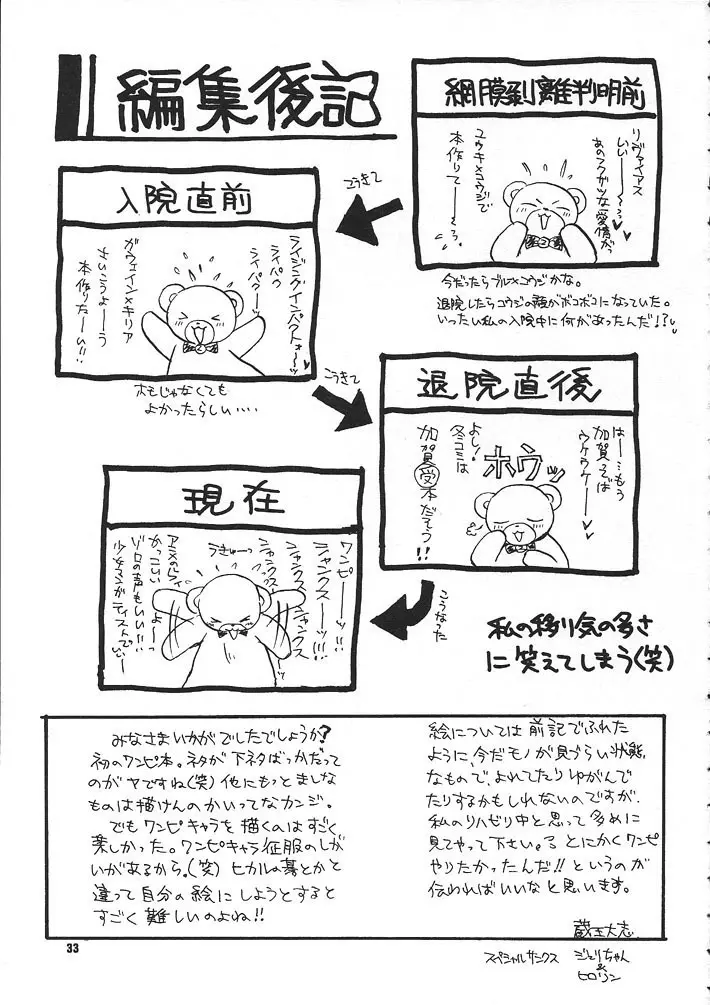 編集後記
網膜剥離判明前
リヴァイアス
いい――〜っ
あのフクザツな愛憎がっ
ユウキ×コウジで
本作りて――〜っっ
今だったらブル×コウジかな。
退院したらコウジの顔がボコボコになっていた。
いったい私の入院中に何があったんだ!?
こうきて
入院直前
ライジングインパクトォーッ
ライパク
ライパクーッ
ガウェイン×キリア
さいこうよ――う
本作りた――い!!
ホモじゃなくても
よかったらしい‥‥
こうきて
退院直後
は――‥もう
加賀ってば
ウケウケ――
ホウッ
よし!
冬コミは
加賀受本だぞっ!!
こうなった
現在
ワンピ――ッ!!
シャンクス――ッ!!
シャンクスシャンクス
シャンクス――ッ
うきゅーっ
アニメのルフィ
かっこいいよ――
ゾロの声もいい!!
少女マンガテイストでいい――
私の移り気の多さ
に笑えてしまう(笑)
みなさまいかがでしたでしょうか?
初のワンピ本。ネタが下ネタばっかだって
のがヤですね(笑)他にもっとましな
ものは描けんのかいってなカンジ。
でもワンピキャラを描くのはすごく
楽しかった。ワンピキャラ征服のしが
いがあるから。(笑) ヒカルの碁とかと
違って自分の絵にしようとすると
すごく難しいのよね!!
絵については前記でふれた
ように、今だモノが見づらい状態
なもので、よれてたりゆがんで
たりするかもしれないのですが、
私のリハビリ中と思って多めに
見てやって下さい。る とにかくワンピ
やりたかったんだ!! というのが
伝わればいいなと思います。
蔵王大志
スペシャルサンクス じぇりちゃん
&
ヒロリン
33